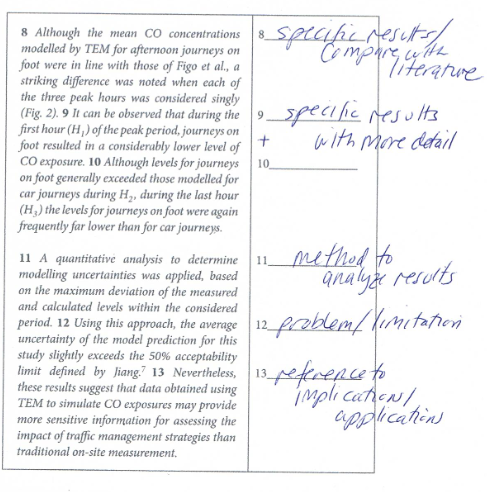 8 Although the mean CO concentrations
modelled by TEM for afternoon journeys on
foot were in line with those of Figo et al., a
striking difference was noted when each of
the three peak hours was considered singly
(Fig. 2). 9 It can be observed that during the
first hour (H₁) of the peak period, journeys on
foot resulted in a considerably lower level of
CO exposure. 10 Although levels for journeys
on foot generally exceeded those modelled for
car journeys during H₂, during the last hour
(H₃) the levels for journeys on foot were again
frequently far lower than for car journeys.
11 A quantitative analysis to determine
modelling uncertainties was applied, based
on the maximum deviation of the measured
and calculated levels within the considered
period. 12 Using this approach, the average
uncertainty of the model prediction for this
study slightly exceeds the 50% acceptability
limit defined by Jiang.⁷ 13 Nevertheless,
these results suggest that data obtained using
TEM to simulate CO exposures may provide
more sensitive information for assessing the
impact of traffic management strategies than
traditional on-site measurement.
8 specific results/
Compare with
literature
9 specific results
+ with more detail
10
11 method to
analyze results
12 problem/limitation
13 reference to
implications/
applications